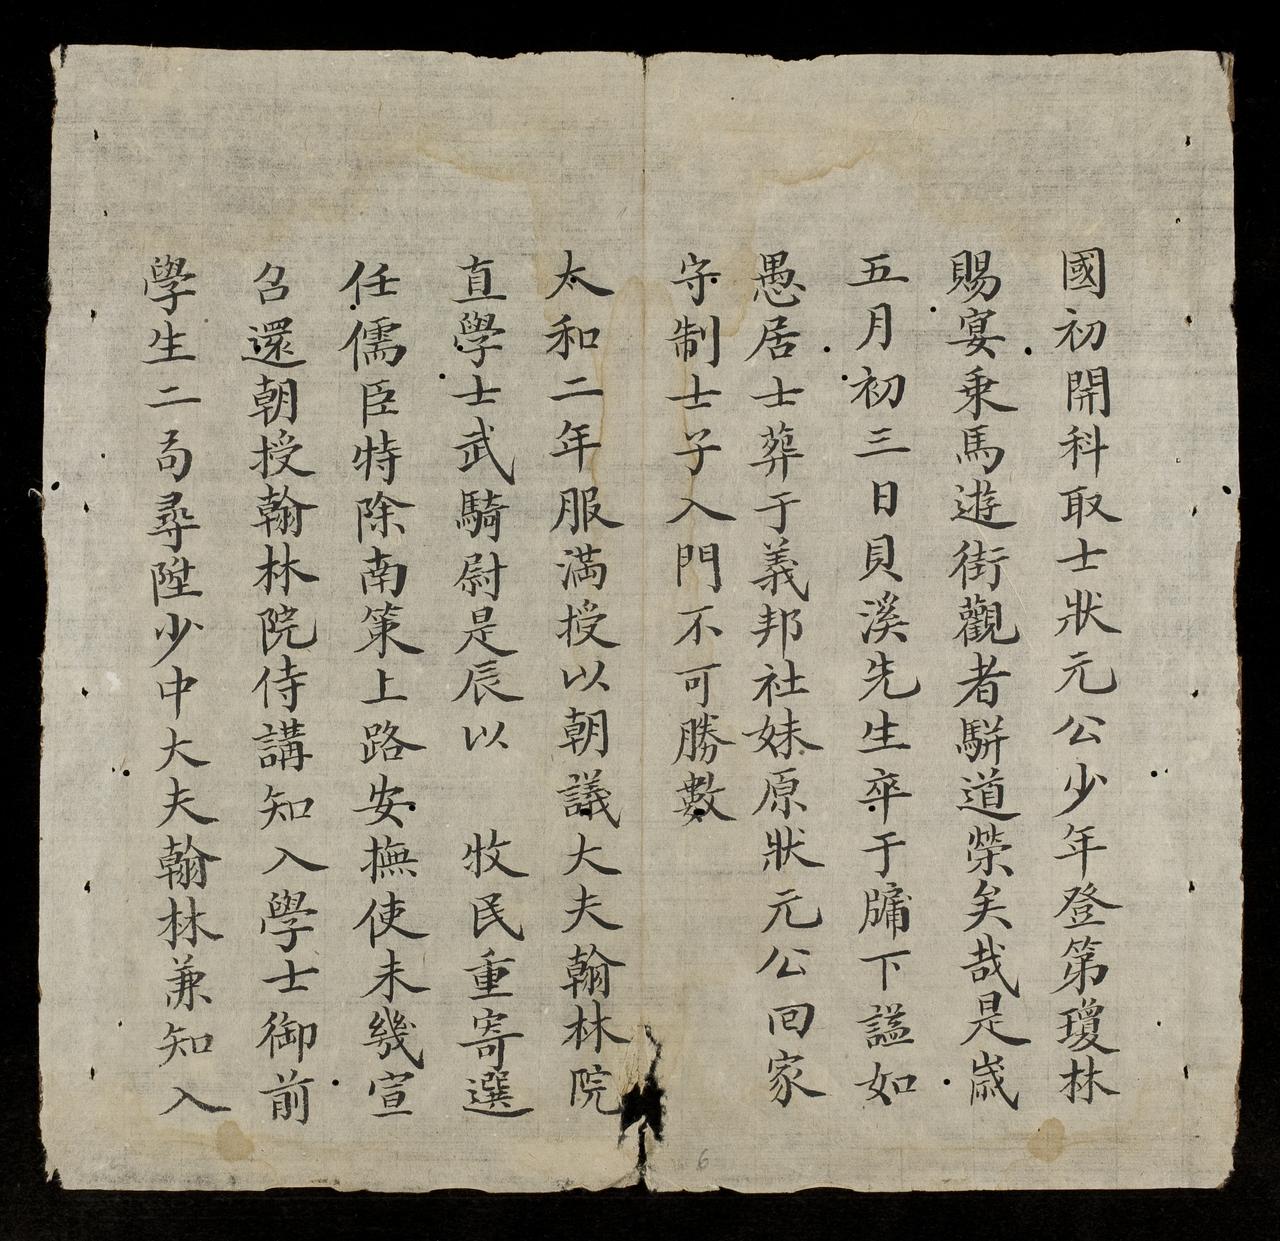 國初開科取士狀元公少年登第瓊林
賜宴乘馬遊街觀者駢道榮矣哉是歲
五月初三日貝溪先生卒于牗下謚如
愚居士葬于義邦社妹原狀元公回家
守制士子入門不可勝數
太和二年服滿授以朝議大夫翰林院
直學士武騎尉是辰以 牧民重寄選
任儒臣特除南策上路安撫使未幾宣
召還朝授翰林院侍講知入學士御前
學生二局尋陞少中大夫翰林兼知入
6